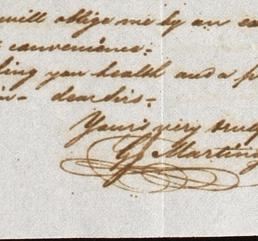 will oblige me by an ea
convenience.-
ing you health and a p
in- dear Sir-
Yours very trul
G. Marting